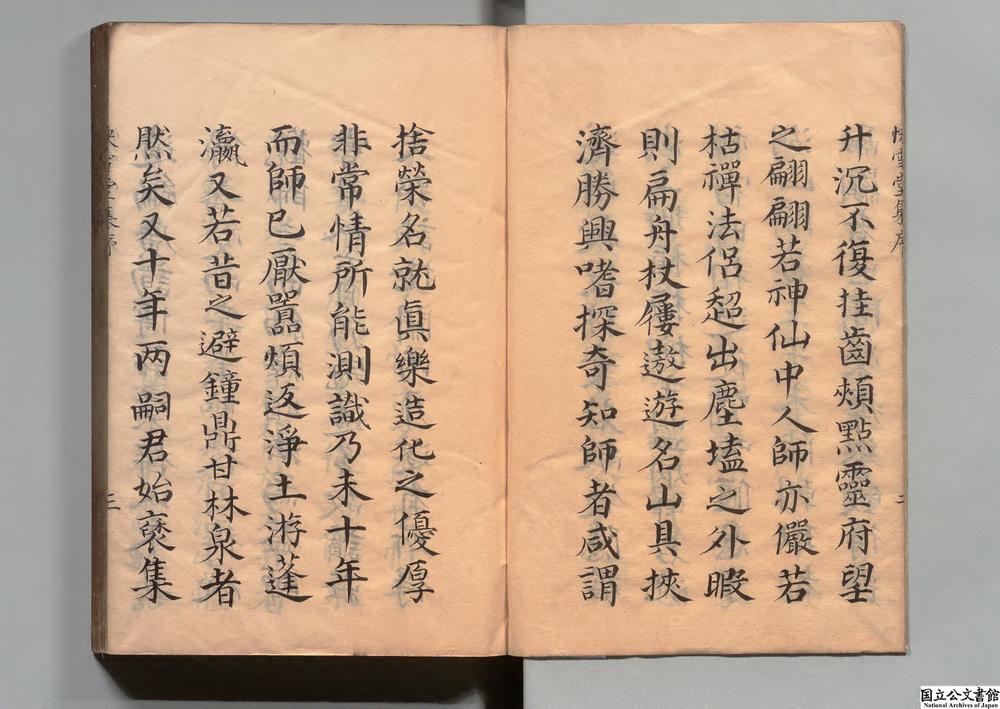 升沉不復挂齒頰點靈府望
之翩翩若神仙中人師亦儼若
枯禪法侶超出塵壒之外暇
則扁舟杖屨遨遊名山具挾
濟勝興嗜探奇知師者咸謂
捨榮名就眞樂造化之優厚
非常情所能測識乃未十年
而師已厭囂煩返淨土游蓬
瀛又若昔之避鐘鼎甘林泉者
然矣又十年两嗣君始裒集
快雪堂集序
二
三
国立公文書館
National Archives of Japan